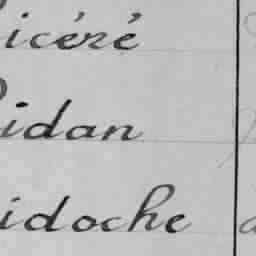 icéré
idan
idoche